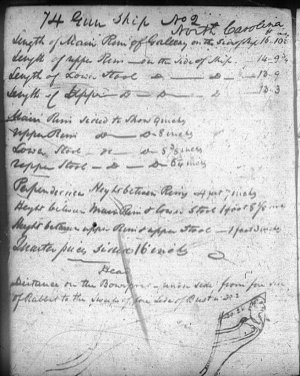 74 Gun Ship No 2
North Carolina
Length of Main Rim of Gallery on the side of ship 16..10
Length of upper Rim — on the side of Ship. — 14-9
Length of Lower Stool — D — D — 13-9
Length of Upper — D — D — 12-3
Main Rim sided to Show 9 inches
upper Rim — D — D 8 inches
Lower Stool — D — D 5 inches
upper Stool — D — D 6 inches
Perpendicular Height between Rims 4 feet inches
Height between Main Rim & Lower Stool 1 foot 8 inches
Height between upper Rim & upper Stool — 1 foot 3 inches
Quarter piece sided 16 inches
Head
Distance on the Bowsprit under side from fore side
of Rabbit to the of fore side of Bust